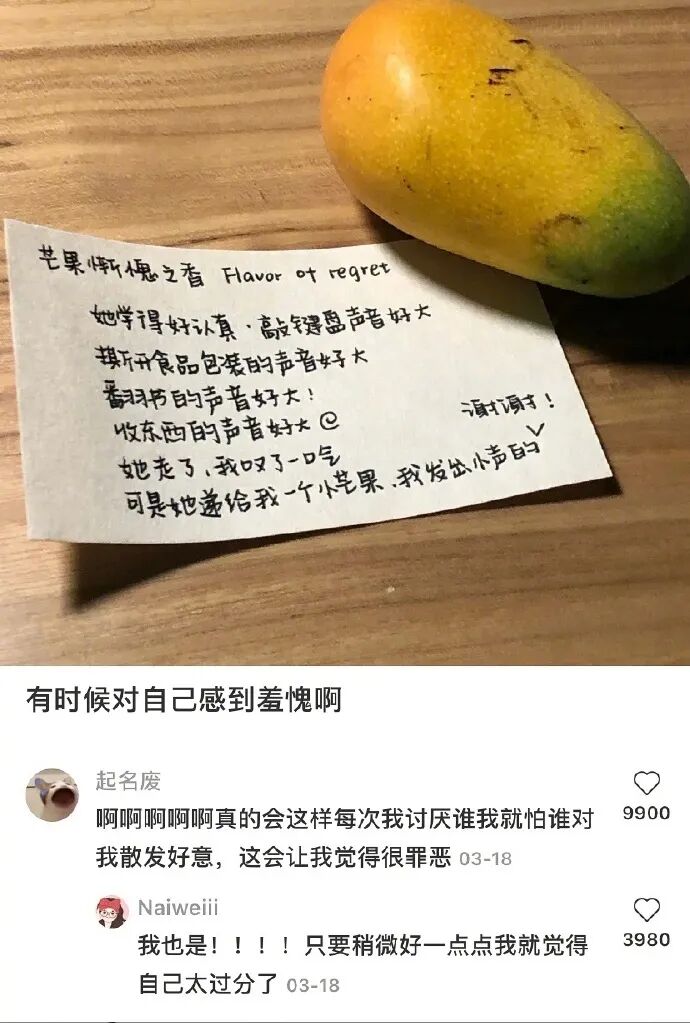 芒果惭愧之香 Flavor of regret
她学得好认真、敲键盘声音好大
撕开食品包装的声音好大
翻书的声音好大!
收东西的声音好大@
她走了、我叹了一口气
可是她递给我一个小芒果、我发出小声的
谢谢!
有时候对自己感到羞愧啊
起名废
啊啊啊啊啊真的会这样每次我讨厌谁我就怕谁对
我散发好意，这会让我觉得很罪恶 03-18
9900
Naiweiii
我也是！！！！只要稍微好一点点我就觉得
自己太过分了 03-18
3980